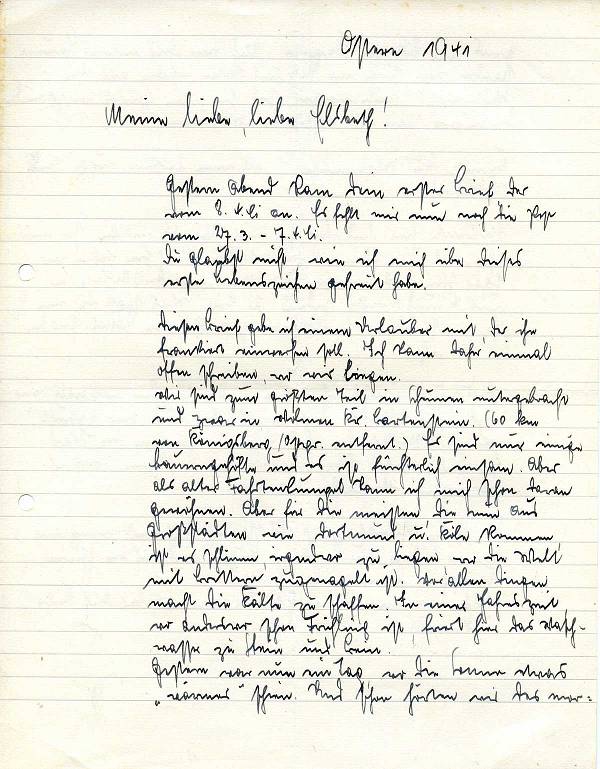 Ostern 1941
Meine liebe, liebe Elsbeth!
Gestern Abend kam Dein erster Brief der
vom 8.4.41 an. Es fehlt mir nun noch die Post
vom 27.3. - 7.4.41.
Du glaubst nicht wie ich mich über dieses
erste Lebenszeichen gefreut habe.
Diesen Brief gebe ich einem Urlauber mit, der ihn
frankiert einwerfen soll. Ich kann daher einmal
offen schreiben, wo wir liegen.
Wir sind zum größten Teil in Scheunen untergebracht
und zwar in Kr. Bartenstein. (60 km
von Königsberg /Ostpr. entfernt.) Es sind nur einige
Bauerngehöfte und es ist fürchterlich einsam. Aber
als alter kann ich mich schon daran
gewöhnen. Aber für die meisten die nun aus
Großstädten wie Dortmund u. Köln kommen,
ist es schlimm, irgendwo zu liegen wo die Welt
mit Brettern zugenagelt ist. Vor allen Dingen
macht die Kälte zu schaffen. In einer Jahreszeit,
wo anderswo schon Frühling ist, friert hier das Wasch-
wasser zu Stein und Bein.
Gestern war nun ein Tag wo die Sonne etwas
"wärmer" schien. Und schon hörten wir des mor-